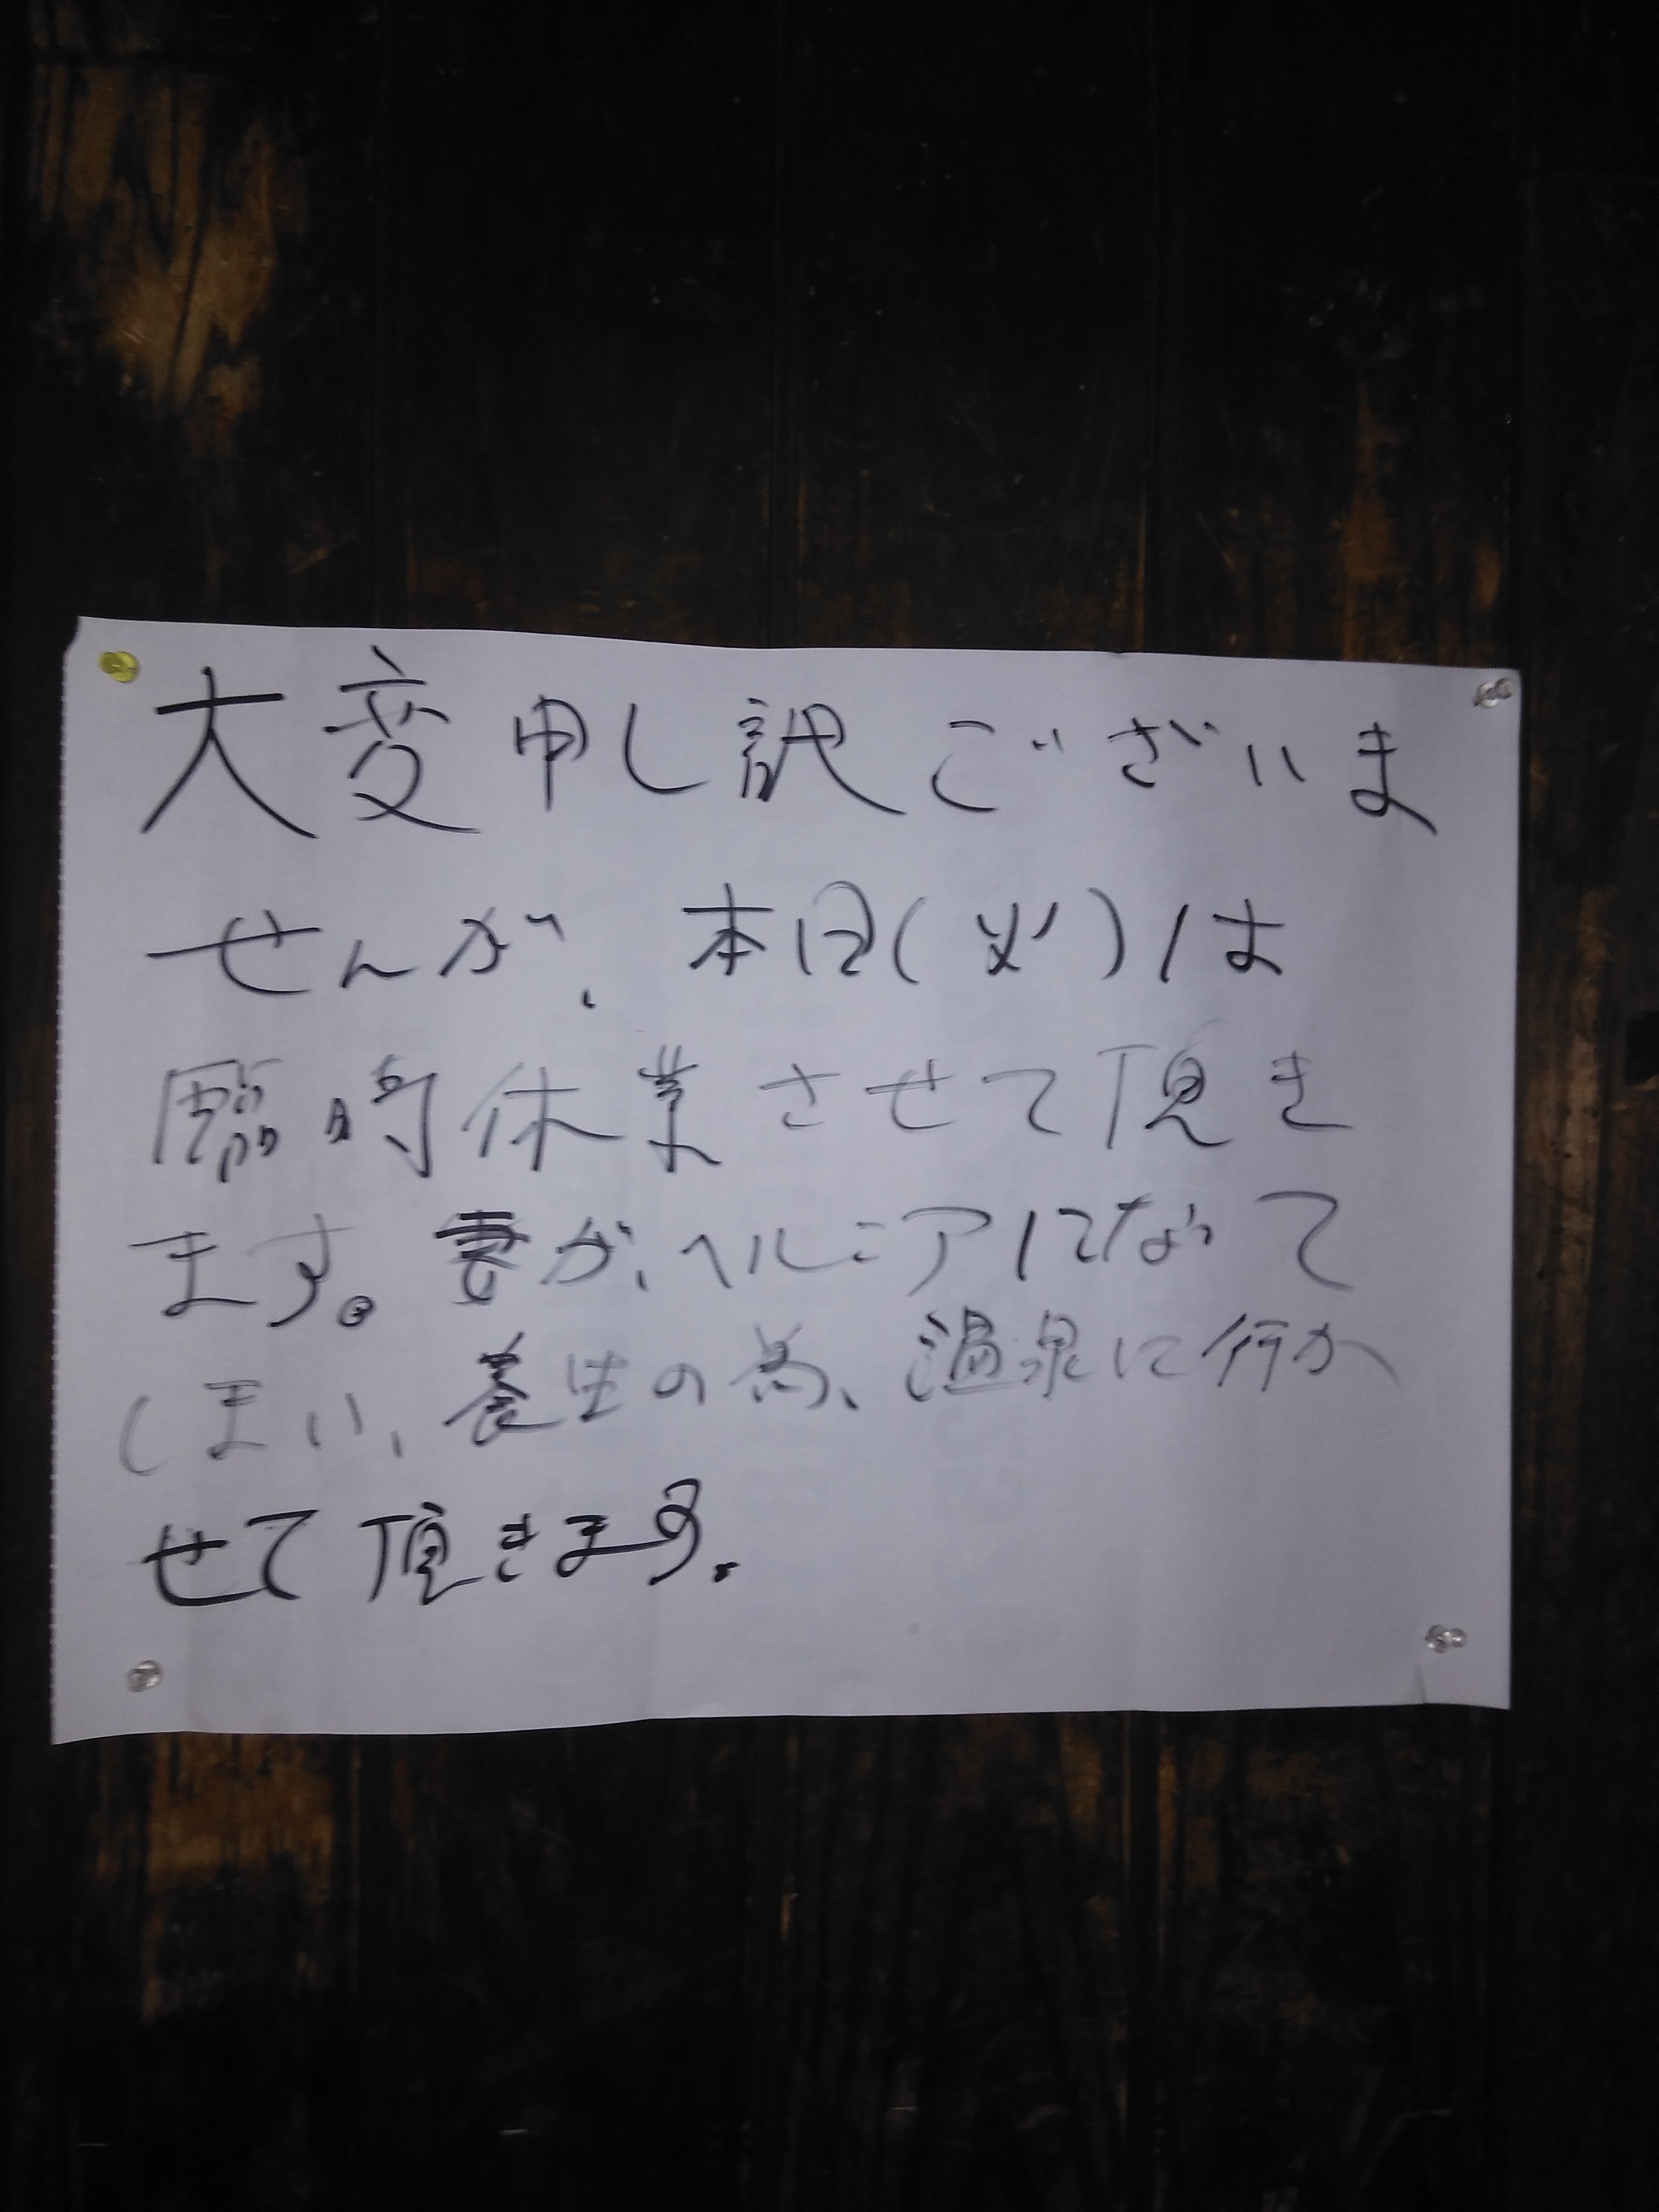 大変申し訳ございま
せんが、本日(火)は
臨時休業させて頂き
ます。妻が、ヘルニアになって
しまい、養生の為、温泉に行か
せて頂きます。